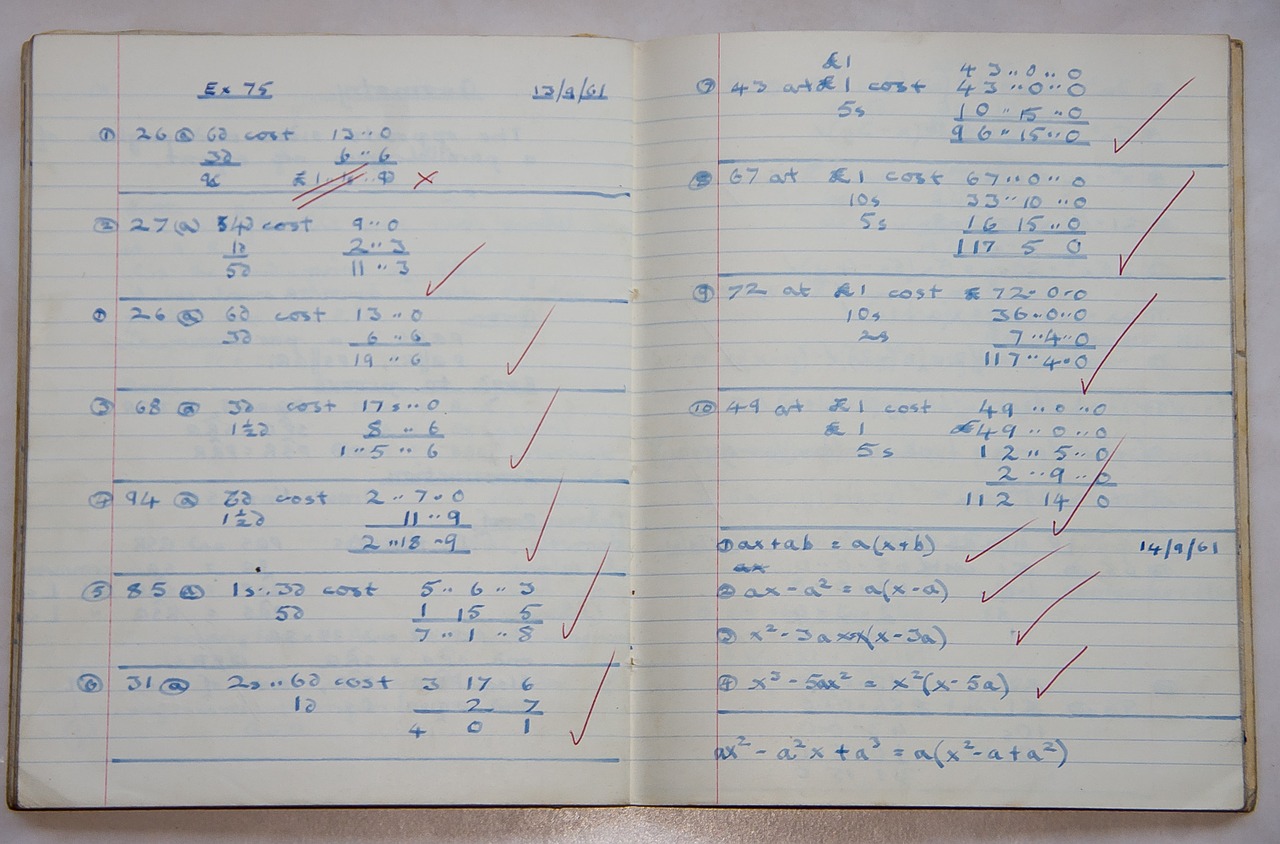 Ex 75 13/9/61
① 26 @ 6d cost 13 ,, 0
3d 6 ,, 6
② 27 @ 4d cost 9 ,, 0
1d 2 ,, 3
5d 11 ,, 3
① 26 @ 6d cost 13 ,, 0
3d 6 ,, 6
19 ,, 6
③ 68 @ 3d cost 17s ,, 0
1½d 8 ,, 6
1 ,, 5 ,, 6
④ 94 @ 6d cost 2 ,, 7 ,, 0
1½d 11 ,, 9
2 ,, 18 ,, 9
⑤ 85 @ 1s ,, 3d cost 5 ,, 6 ,, 3
5d 1 15 5
7 ,, 1 ,, 8
⑥ 31 @ 2s ,, 6d cost 3 17 6
1d 2 7
4 0 1
£1 43 ,, 0 ,, 0
⑦ 43 at £1 cost 43 ,, 0 ,, 0
5s 10 ,, 15 ,, 0
96 ,, 15 ,, 0
⑧ 67 at £1 cost 67 ,, 0 ,, 0
10s 33 ,, 10 ,, 0
5s 16 15 ,, 0
117 5 0
⑨ 72 at £1 cost £72 ,, 0 ,, 0
10s 36 ,, 0 ,, 0
2s 7 ,, 4 ,, 0
117 ,, 4 ,, 0
⑩ 49 at £1 cost 49 ,, 0 ,, 0
£1 £49 ,, 0 ,, 0
5s 12 ,, 5 ,, 0
2 ,, 9 ,, 0
112 14 0
① ax + ab = a(x+b) 14/9/61
ax
② ax - a² = a(x-a)
③ x² - 3ax (x-3a)
④ x³ - 5ax² = x²(x-5a)
ax² - a²x + a³ = a(x²-a+a²)